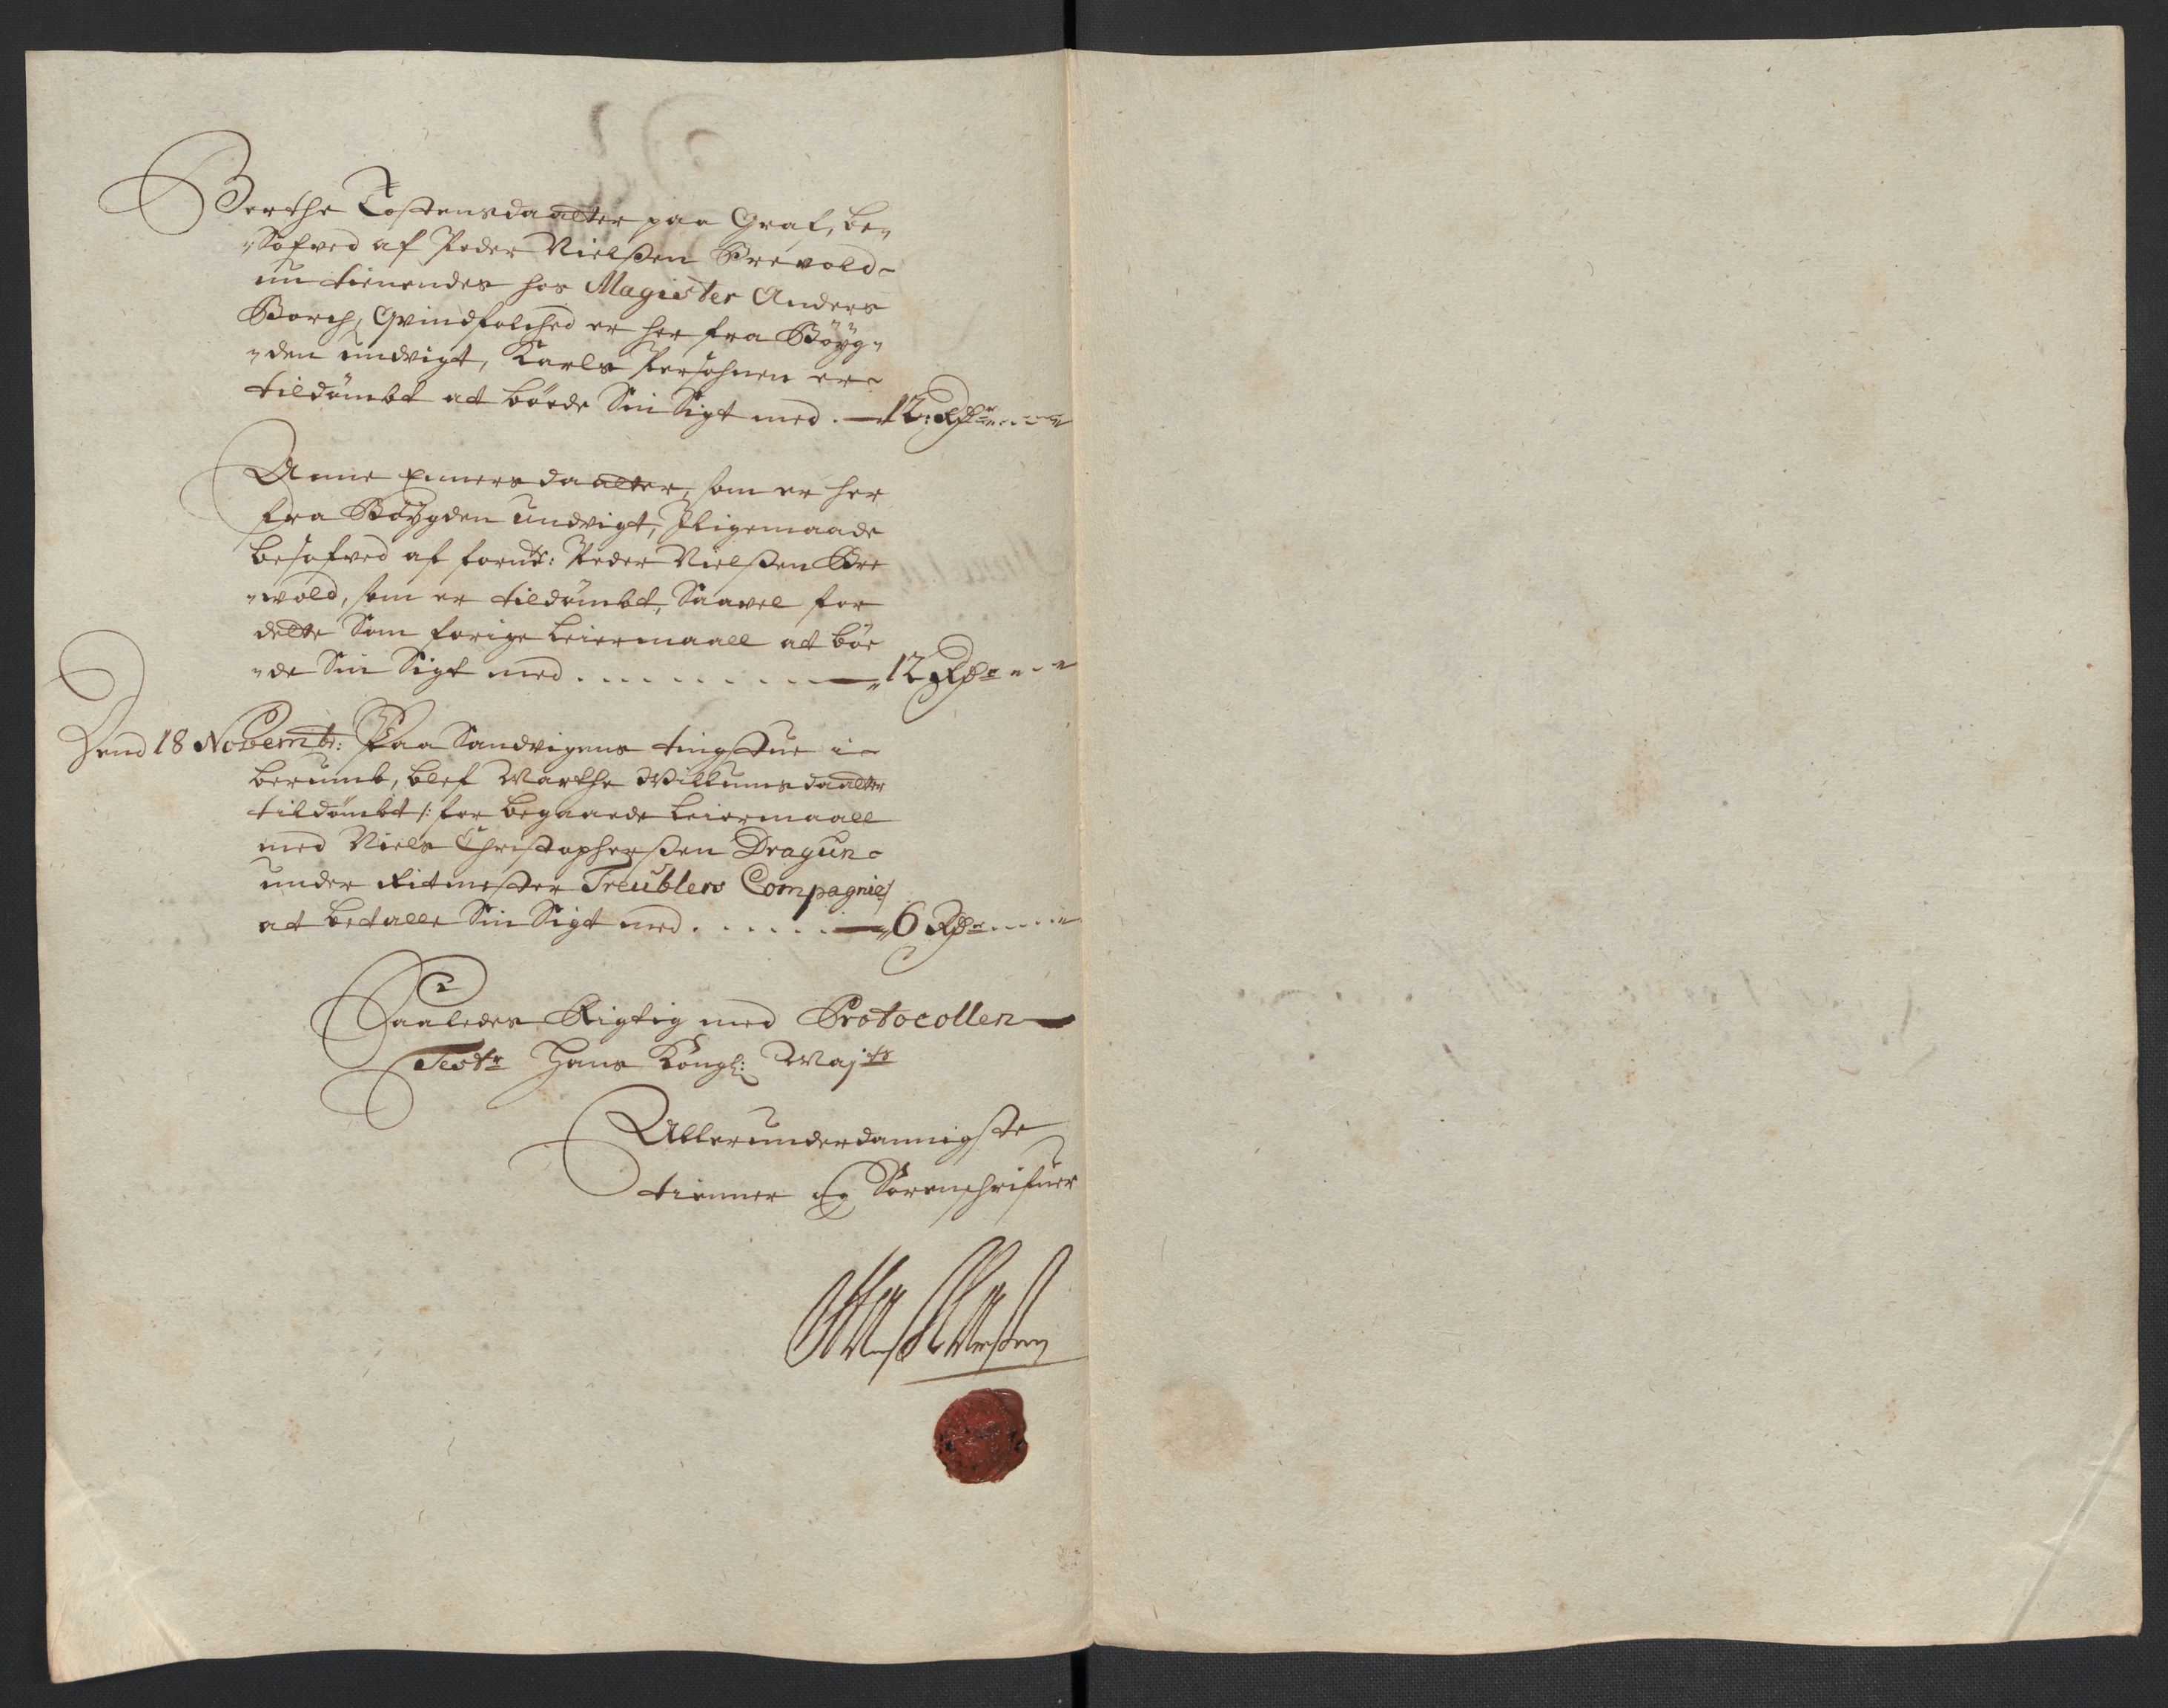 Berthe Tostensdaatter paa Graf, be„
„Sofved af Peder Nielßen Brevold
nu tienendes hos Magister Anders
Borch, Qvindfolched er her fra Böyg„
„den undvigt, Karls Persohnen er
tildömbt at böede Sin Sigt med . — 12: Rdr
Anne Einersdaatter, som er her
fra Böygden undvigt, Iligemaade
besofved af fornte: Peder Nielßen Bre
„vold, som er tildömbt, Saavel for
dette Som forige Leiermaall at böe
„de Sin Sigt med . . . . . . . . . — 12 Rdr
Dend 18 Novembr: Paa Sandvigens tingstue i
berumb, blef Marthe Willumsdaatter
tildömbt /: for begaaede Leiermaall
med Niels Christopherßen Dragun
under Ritmester Treublers Compagnie/
at betalle Sin Sigt med . . . . . . — 6 Rdr
Saaledes Rigtig med Protocollen
Testr Hans Kongl: Mayts
Allerunderdannigste
tienner og Sorenschrifuer